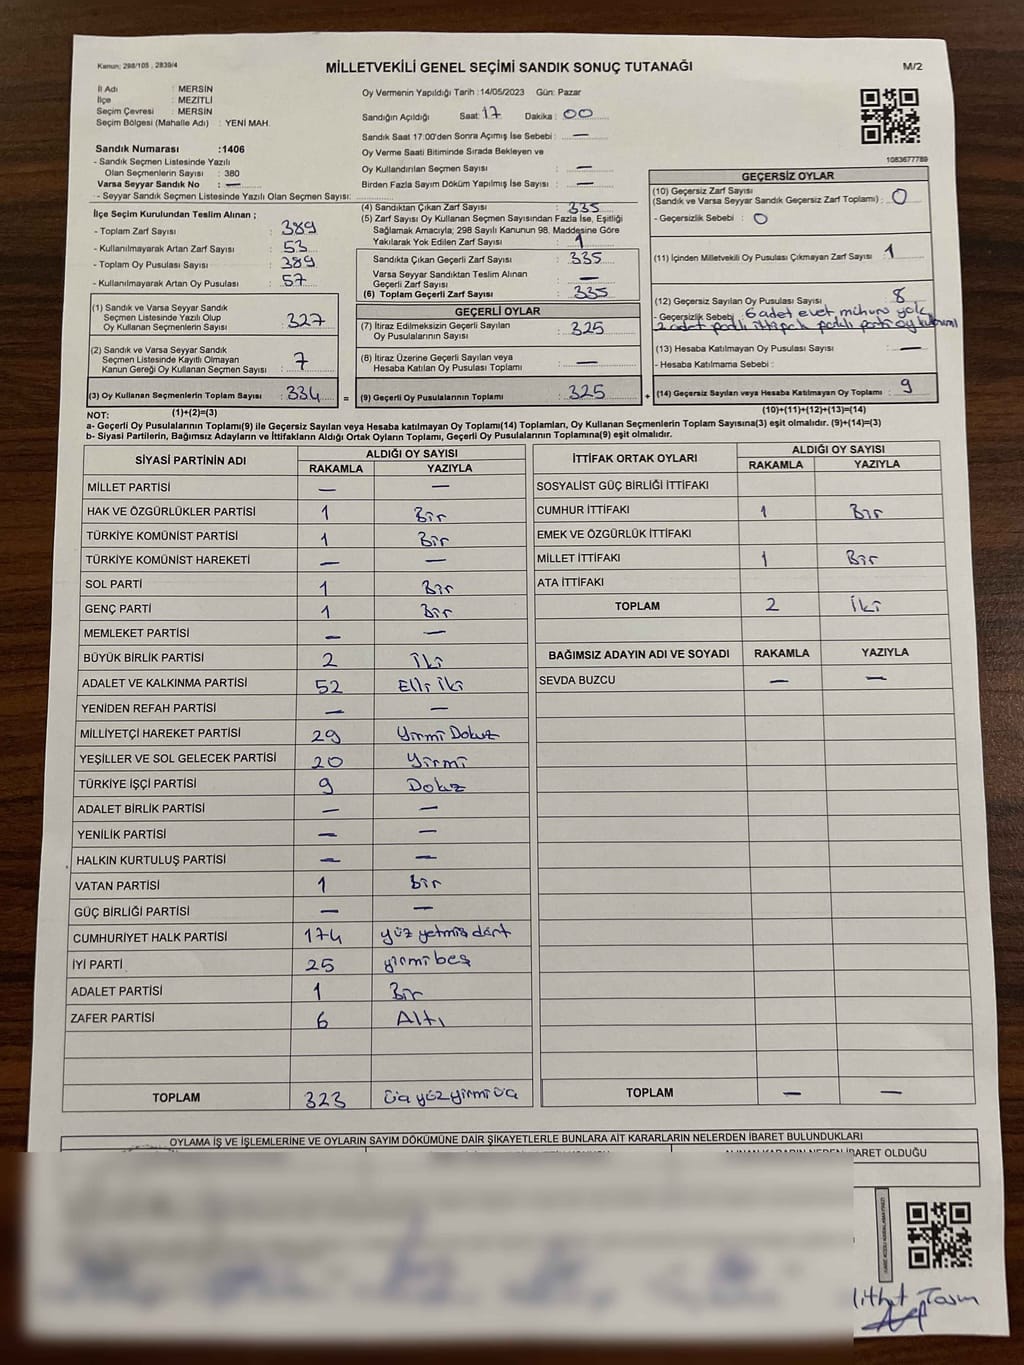 Kanun; 298/105 , 2839/4
MİLLETVEKİLİ GENEL SEÇİMİ SANDIK SONUÇ TUTANAĞI
M/2
İl Adı : MERSİN
İlçe : MEZİTLİ
Seçim Çevresi : MERSİN
Seçim Bölgesi (Mahalle Adı) : YENİ MAH.
Sandık Numarası :1406
- Sandık Seçmen Listesinde Yazılı
Olan Seçmenlerin Sayısı : 380
Varsa Seyyar Sandık No : —
- Seyyar Sandık Seçmen Listesinde Yazılı Olan Seçmen Sayısı:
Oy Vermenin Yapıldığı Tarih :14/05/2023 Gün: Pazar
Sandığın Açıldığı Saat: 17 Dakika : 00
Sandık Saat 17:00'den Sonra Açımış İse Sebebi : —
Oy Verme Saati Bitiminde Sırada Bekleyen ve
Oy Kullandırılan Seçmen Sayısı : —
Birden Fazla Sayım Döküm Yapılmış İse Sayısı : —
1083677789
İlçe Seçim Kurulundan Teslim Alınan ;
- Toplam Zarf Sayısı : 389
- Kullanılmayarak Artan Zarf Sayısı : 53
- Toplam Oy Pusulası Sayısı : 389
- Kullanılmayarak Artan Oy Pusulası : 57
(1) Sandık ve Varsa Seyyar Sandık
Seçmen Listesinde Yazılı Olup
Oy Kullanan Seçmenlerin Sayısı : 327
(2) Sandık ve Varsa Seyyar Sandık
Seçmen Listesinde Kayıtlı Olmayan
Kanun Gereği Oy Kullanan Seçmen Sayısı : 7
(3) Oy Kullanan Seçmenlerin Toplam Sayısı : 334 =
(1)+(2)=(3)
(4) Sandıktan Çıkan Zarf Sayısı : 335
(5) Zarf Sayısı Oy Kullanan Seçmen Sayısından Fazla İse, Eşitliği
Sağlamak Amacıyla; 298 Sayılı Kanunun 98. Maddesine Göre
Yakılarak Yok Edilen Zarf Sayısı : 1
Sandıkta Çıkan Geçerli Zarf Sayısı : 335
Varsa Seyyar Sandıktan Teslim Alınan
Geçerli Zarf Sayısı : —
(6) Toplam Geçerli Zarf Sayısı : 335
GEÇERLİ OYLAR
(7) İtiraz Edilmeksizin Geçerli Sayılan
Oy Pusulalarının Sayısı : 325
(8) İtiraz Üzerine Geçerli Sayılan veya
Hesaba Katılan Oy Pusulası Toplamı : —
(9) Geçerli Oy Pusulalarının Toplamı : 325 +
GEÇERSİZ OYLAR
(10) Geçersiz Zarf Sayısı
(Sandık ve Varsa Seyyar Sandık Geçersiz Zarf Toplamı) : 0
- Geçersizlik Sebebi : 0
(11) İçinden Milletvekili Oy Pusulası Çıkmayan Zarf Sayısı : 1
(12) Geçersiz Sayılan Oy Pusulası Sayısı : 8
- Geçersizlik Sebebi : 6 adet evet mührü yok
2 adet ittipak
(13) Hesaba Katılmayan Oy Pusulası Sayısı : —
- Hesaba Katılmama Sebebi :
(14) Geçersiz Sayılan veya Hesaba Katılmayan Oy Toplamı : 9
(10)+(11)+(12)+(13)=(14)
NOT:
a- Geçerli Oy Pusulalarının Toplamı(9) ile Geçersiz Sayılan veya Hesaba katılmayan Oy Toplamı(14) Toplamları, Oy Kullanan Seçmenlerin Toplam Sayısına(3) eşit olmalıdır. (9)+(14)=(3)
b- Siyasi Partilerin, Bağımsız Adayların ve İttifakların Aldığı Ortak Oyların Toplamı, Geçerli Oy Pusulalarının Toplamına(9) eşit olmalıdır.
SİYASİ PARTİNİN ADI ALDIĞI OY SAYISI
RAKAMLA YAZIYLA
MİLLET PARTİSİ — —
HAK VE ÖZGÜRLÜKLER PARTİSİ 1 Bir
TÜRKİYE KOMÜNİST PARTİSİ 1 Bir
TÜRKİYE KOMÜNİST HAREKETİ — —
SOL PARTİ 1 Bir
GENÇ PARTİ 1 Bir
MEMLEKET PARTİSİ — —
BÜYÜK BİRLİK PARTİSİ 2 İki
ADALET VE KALKINMA PARTİSİ 52 Elli iki
YENİDEN REFAH PARTİSİ — —
MİLLİYETÇİ HAREKET PARTİSİ 29 Yirmi Dokuz
YEŞİLLER VE SOL GELECEK PARTİSİ 20 Yirmi
TÜRKİYE İŞÇİ PARTİSİ 9 Dokz
ADALET BİRLİK PARTİSİ — —
YENİLİK PARTİSİ — —
HALKIN KURTULUŞ PARTİSİ — —
VATAN PARTİSİ 1 Bir
GÜÇ BİRLİĞİ PARTİSİ — —
CUMHURİYET HALK PARTİSİ 174 yüz yetmiş dört
İYİ PARTİ 25 yirmi beş
ADALET PARTİSİ 1 Bir
ZAFER PARTİSİ 6 Altı
TOPLAM 323 üç yüz yirmi üç
İTTİFAK ORTAK OYLARI ALDIĞI OY SAYISI
RAKAMLA YAZIYLA
SOSYALİST GÜÇ BİRLİĞİ İTTİFAKI
CUMHUR İTTİFAKI 1 Bir
EMEK VE ÖZGÜRLÜK İTTİFAKI
MİLLET İTTİFAKI 1 Bir
ATA İTTİFAKI
TOPLAM 2 İki
BAĞIMSIZ ADAYIN ADI VE SOYADI RAKAMLA YAZIYLA
SEVDA BUZCU — —
TOPLAM — —
OYLAMA İŞ VE İŞLEMLERİNE VE OYLARIN SAYIM DÖKÜMÜNE DAİR ŞİKAYETLERLE BUNLARA AİT KARARLARIN NELERDEN İBARET BULUNDUKLARI
ALINAN KARARIN NEDEN İBARET OLDUĞU